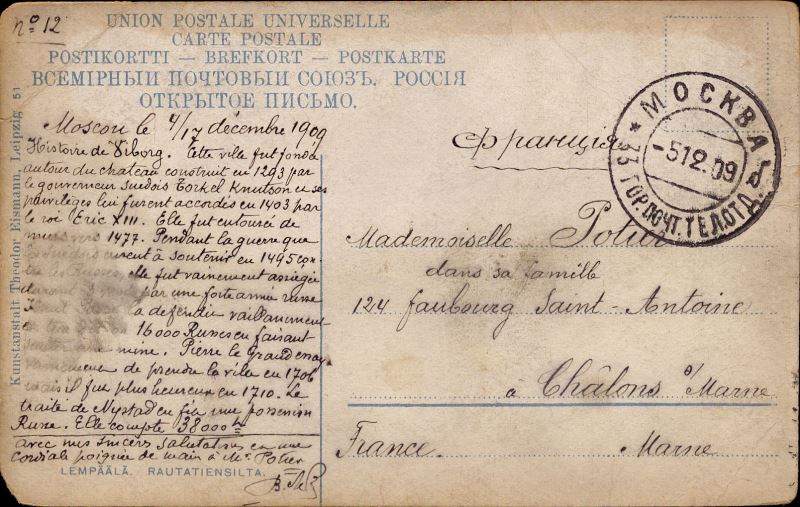 nº 12
UNION POSTALE UNIVERSELLE
CARTE POSTALE
POSTIKORTTI — BREFKORT — POSTKARTE
ВСЕМІРНЫЙ ПОЧТОВЫЙ СОЮЗЪ. РОССІЯ
ОТКРЫТОЕ ПИСЬМО.
Moscou le 4/17 décembre 1909
Histoire de Viborg. Cette ville fut fondée
autour du chateau construit en 1293 par
le gouverneur suedois Torkel Knutson et ses
privilèges lui furent accordés en 1403 par
le roi Eric XIII. Elle fut entourée de
murs vers 1477. Pendant la guerre que
eurent à soutenir en 1495 con-
tre les Russes, elle fut vainement assiégée
durant par une forte armée russe
la défendit vaillamment
16000 Russes en faisant
mine. Pierre le Grand essaya
vainement de prendre la ville en 1706
mais il fut plus heureux en 1710. Le
traité de Nystad en fit une possession
Russe. Elle compte 38000 h
avec mes sincères salutations et une
cordiale poignée de main à Mr Potier
LEMPÄÄLÄ. RAUTATIENSILTA.
Kunstanstalt Theodor Eismann, Leipzig 51
Франція
МОСКВА
-5.12.09
ГОР.ПОЧТ.ТЕЛ.ОТД.
Mademoiselle Potier
dans sa famille
124 faubourg Saint-Antoine
à Châlons s/Marne
France. Marne